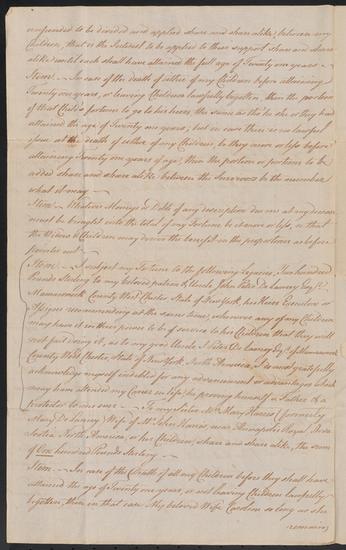 to be divided and applied share and share alike, between my
Children, that is the Interest to be applied to their support share and share
alike until each shall have attained the full age of Twenty one years —
Item — In case of the death of either of my Children before attaining
Twenty one years, or leaving Children lawfully begotten, then the portion
of that Child's fortune to go to his heirs, the same as tho' he she or they had
attained the age of Twenty one years, but in case there is no lawful
issue at the death of either of my Children, be they more or less before
attaining Twenty one years of age, then the portion or portions to be
added share and share alike between the Survivors be the number
what it may —
Item — Whatever Moneys or Debts of any description due me at my decease
must be brought into the total of my Fortune be it more or less, so that
the Widow & Children may derive the benefit in the proportions as before
pointed out —
Item — I subject my Fortune to the following Legacies, Two hundred
Pounds Sterling to my beloved patron & Uncle John Peter De Lancey Esqr. of
Mamaroneck County West Chester State of New York, his Heirs Executors or
Assigns recommending at the same time, whenever any of my Children
may have it in their power to be of service to his Children that they will
not fail doing it, as to my great Uncle J. Peter De Lancey Esqr. of Mamaroneck
County West Chester, State of New York, North America, I do most gratefully
acknowledge myself indebted for any advancement or advantages which
may have attended my Career in life, he proving himself a Father & a
Protector to me ever — To my Sister Mrs. Mary Harris (formerly
Mary De Lancey) Wife of Mr. John Harris, near Annapolis Royal Nova
Scotia North America, or her Children, share and share alike, the sum
of One hundred Pounds Sterling —
Item — In case of the Death of all my Children before they shall have
attained the age of Twenty one years, or not having Children lawfully
begotten, then in that case My beloved Wife Caroline so long as she
remains